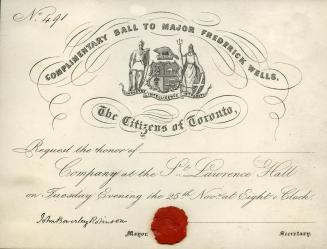 No. 491
COMPLIMENTARY BALL TO MAJOR FREDERICK WELLS,
INTELLIGENCE
The Citizens of Toronto,
Request the honor of
Company at the St. Lawrence Hall
on Tuesday Evening the 25th Novr. at Eight o'Clock.
John Beverley Robinson
Mayor. Secretary.